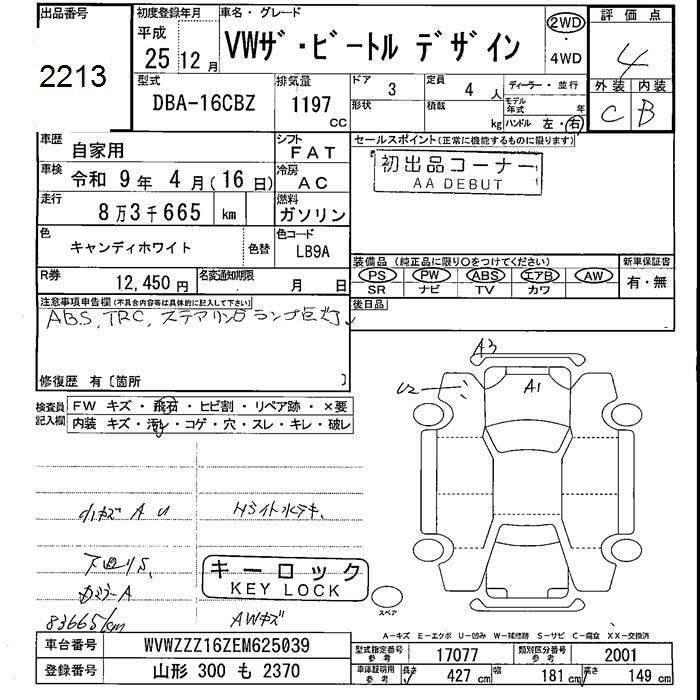 出品番号
2213
初度登録年月
平成
25 12 月
車名・グレード
VWザ・ビートル デザイン
2WD
4WD
評価点
4
外装 内装
C B
型式
DBA-16CBZ
排気量
1197 cc
ドア 3
形状
定員 4 人
積載 kg
ディーラー・並行
モデル年式 年
ハンドル 左・右
車歴 自家用
シフト FAT
車検 令和 9年 4月(16日)
冷房 AC
走行 8万3千665 km
燃料 ガソリン
色 キャンディホワイト 色替
色コード LB9A
R券 12,450円
名変通知期限 月 日
セールスポイント(正常に機能するものに限ります)
初出品コーナー
AA DEBUT
装備品(純正品に限り○をつけてください)
PS PW ABS エアB AW
SR ナビ TV カワ
新車保証書
有・無
後日品
注意事項申告欄(不具合内容等は具体的に記入して下さい)
ABS, TRC, ステアリングランプ点灯
修復歴 有〔箇所 〕
検査員記入欄
FW キズ・飛石・ヒビ割・リペア跡・×要
内装 キズ・汚れ・コゲ・穴・スレ・キレ・破レ
A3
U2
A1
小キズ A U
下回りS
A
83665km
AWキズ
キーロック
KEY LOCK
スペア
A-キズ E-エクボ U-凹み W-補修跡 S-サビ C-腐食 XX-交換済
車台番号 WVWZZZ16ZEM625039
登録番号 山形 300 も 2370
型式指定番号 参考 17077
類別区分番号 参考 2001
車庫証明用 参考
長さ 427 cm 幅 181 cm 高さ 149 cm